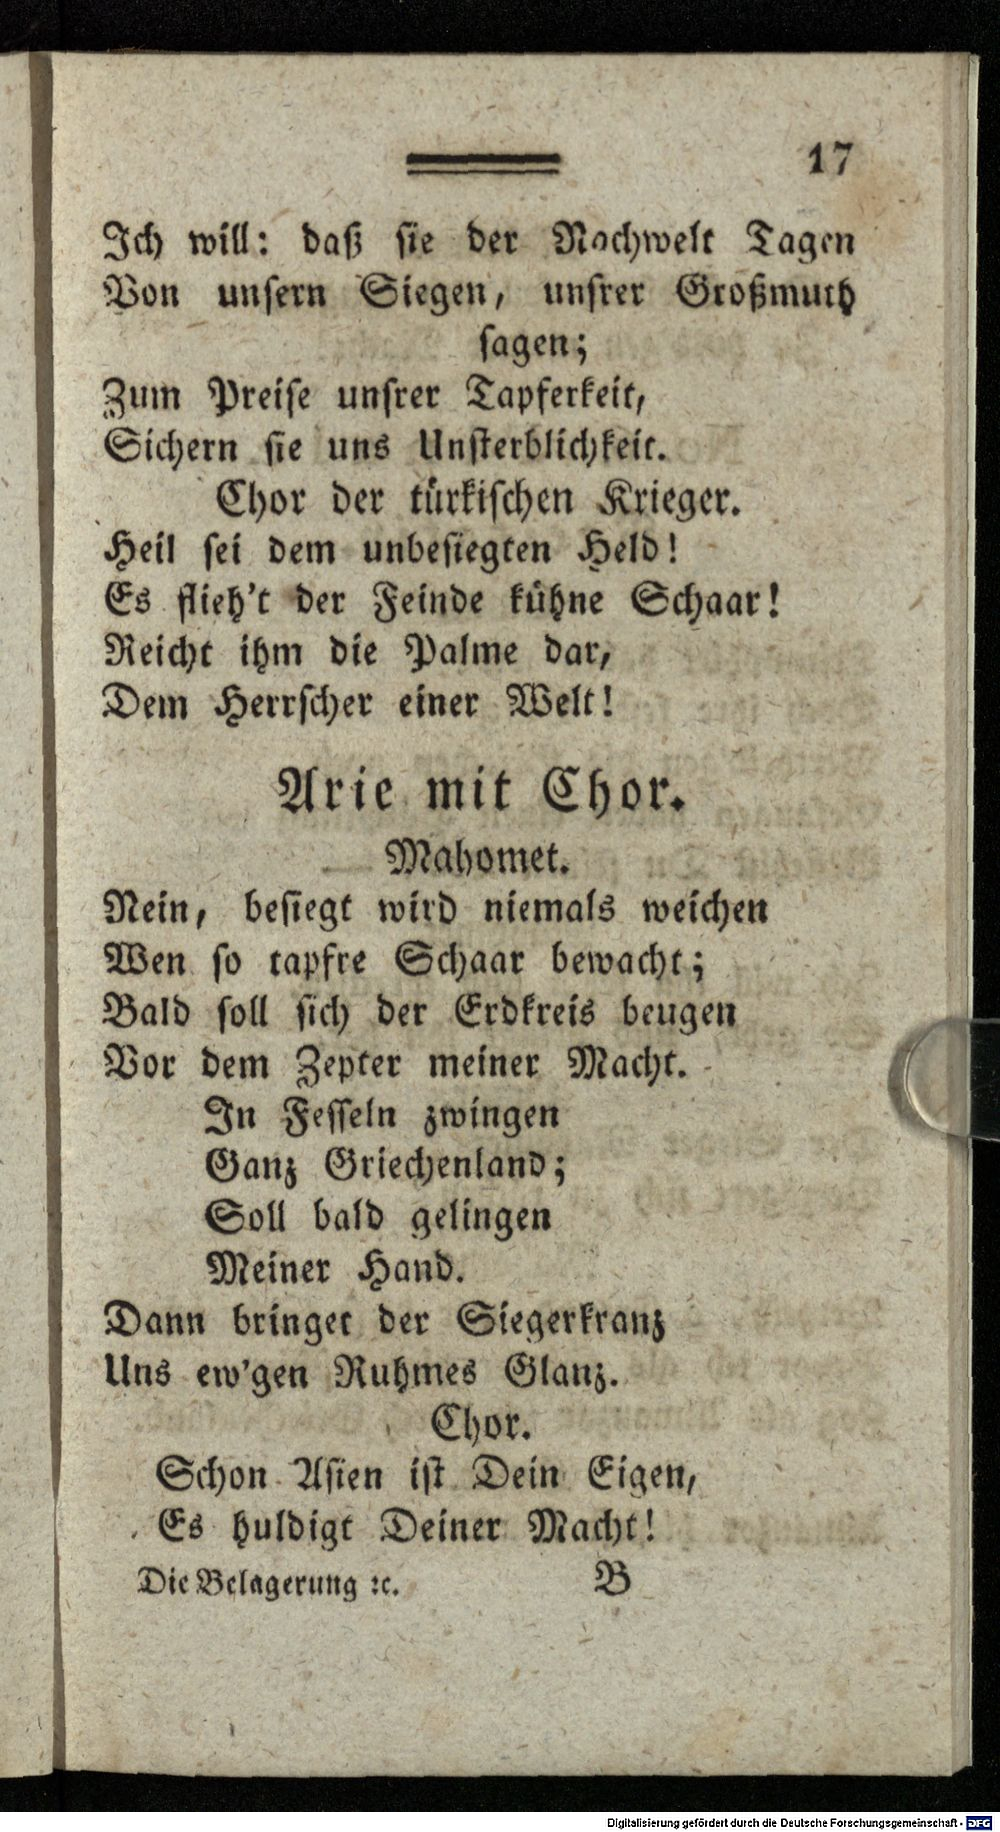 17
Ich will: daß sie der Nachwelt Tagen
Von unsern Siegen, unsrer Großmuth
sagen;
Zum Preise unsrer Tapferkeit,
Sichern sie uns Unsterblichkeit.
Chor der türkischen Krieger.
Heil sei dem unbesiegten Held!
Es flieh't der Feinde kühne Schaar!
Reicht ihm die Palme dar,
Dem Herrscher einer Welt!
Arie mit Chor.
Mahomet.
Nein, besiegt wird niemals weichen
Wen so tapfre Schaar bewacht;
Bald soll sich der Erdkreis beugen
Vor dem Zepter meiner Macht.
In Fesseln zwingen
Ganz Griechenland;
Soll bald gelingen
Meiner Hand.
Dann bringet der Siegerkranz
Uns ew'gen Ruhmes Glanz.
Chor.
Schon Asien ist Dein Eigen,
Es huldigt Deiner Macht!
Die Belagerung ꝛc. B
Digitalisierung gefördert durch die Deutsche Forschungsgemeinschaft - DFG